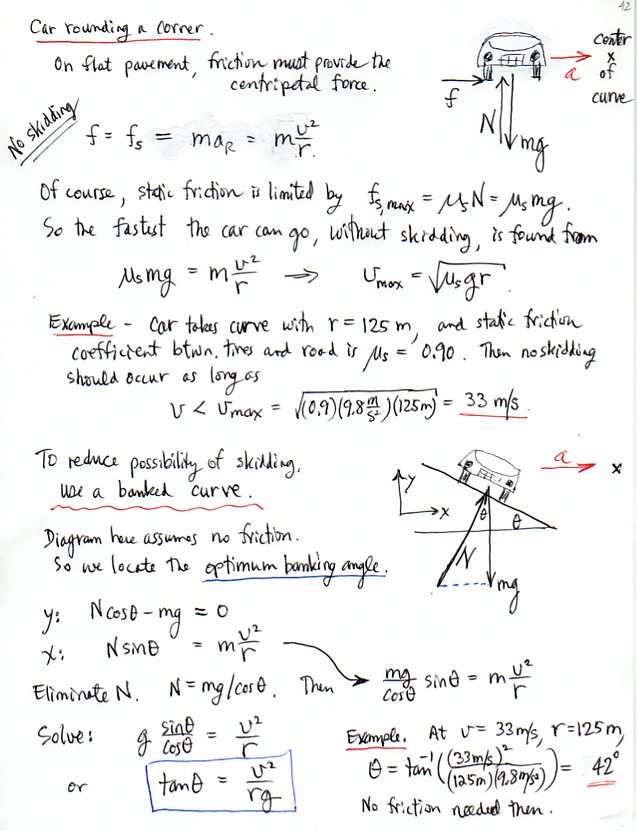 42
Car rounding a corner.
On flat pavement, friction must provide the
centripetal force.
a
center
x
of
curve
f
N
mg
No skidding
f = fs = maR = m v²/r.
Of course, static friction is limited by fs,max = μsN = μsmg.
So the fastest the car can go, without skidding, is found from
μsmg = m v²/r ⟹ vmax = √(μsgr)
Example - Car takes curve with r = 125 m, and static friction
coefficient btwn. tires and road is μs = 0.90. Then no skidding
should occur as long as
v < vmax = √((0.9)(9.8 m/s²)(125m)) = 33 m/s.
To reduce possibility of skidding,
use a banked curve.
a
x
y
x
θ
θ
N
mg
Diagram here assumes no friction.
So we locate the optimum banking angle.
y: Ncosθ - mg = 0
x: Nsinθ = m v²/r
Eliminate N. N = mg/cosθ. Then mg/cosθ sinθ = m v²/r
Solve: g sinθ/cosθ = v²/r
or tanθ = v²/rg
Example. At v = 33m/s, r = 125m,
θ = tan⁻¹((33m/s)²/(125m)(9.8m/s²)) = 42°
No friction needed then.